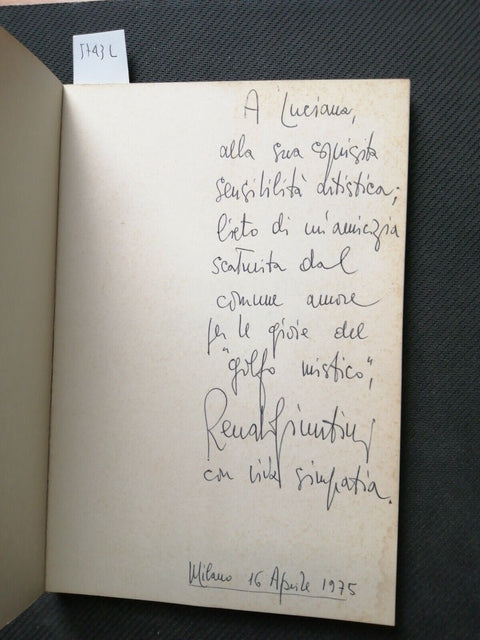 5743L
A Luciana,
alla sua squisita
sensibilità artistica;
lieto di un'amicizia
scaturita dal
comune amore
per le gioie del
"golfo mistico",
Renato Giuntini
con viva simpatia.
Milano 16 Aprile 1975